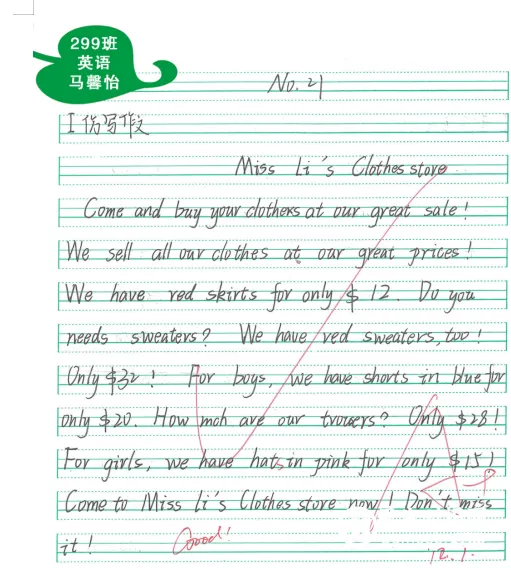 299班
英语
马馨怡
No. 21
I 仿写作文
Miss Li's Clothes store
Come and buy your clothers at our great sale!
We sell all our clothes at our great prices!
We have red skirts for only $ 12. Do you
needs sweaters? We have red sweaters, too!
Only $32! For boys, we have shorts in blue for
only $20. How mch are our trousers? Only $28!
For girls, we have hats in pink for only $15!
Come to Miss Li's Clothes store now! Don't miss
it!
Good!
12.1.